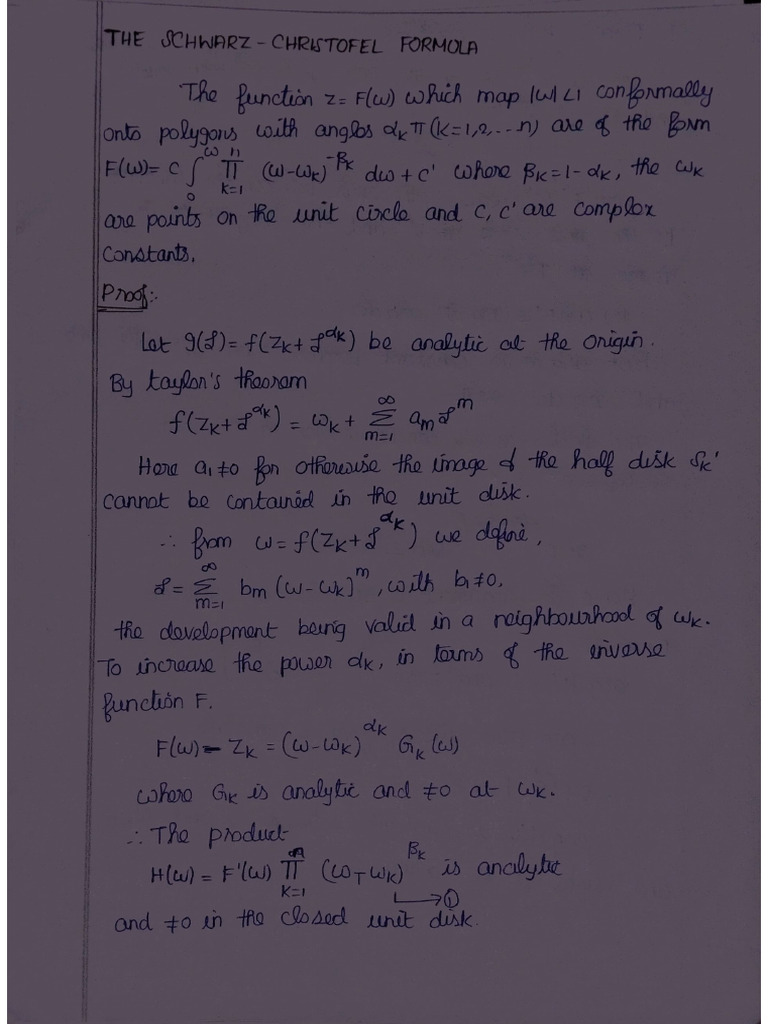 THE SCHWARZ - CHRISTOFEL FORMULA
The function z = F(ω) which map |ω| < 1 conformally
onto polygons with angles αₖπ (k=1,2,...n) are of the form
F(ω) = C ∫₀^ω ∏ₖ₌₁ⁿ (ω-ωₖ)^-βₖ dω + c' where βₖ = 1-αₖ, the ωₖ
are points on the unit circle and C, C' are complex
constants.
Proof:-
Let g(ζ) = f(zₖ + ζ^αₖ) be analytic at the origin.
By taylor's theorem
f(zₖ + ζ^αₖ) = ωₖ + ∑ₘ₌₁^∞ aₘ ζ^m
Here a₁≠0 for otherwise the image of the half disk Sₖ'
cannot be contained in the unit disk.
∴ from ω = f(zₖ + ζ^αₖ) we define,
ζ = ∑ₘ₌₁^∞ bₘ (ω-ωₖ)^m, with b₁≠0.
the development being valid in a neighbourhood of ωₖ.
To increase the power αₖ, in terms of the inverse
function F.
F(ω) - zₖ = (ω-ωₖ)^αₖ Gₖ(ω)
where Gₖ is analytic and ≠0 at ωₖ.
∴ The product
H(ω) = F'(ω) ∏ₖ₌₁ⁿ (ω-ωₖ)^βₖ is analytic
→ ①
and ≠0 in the closed unit disk.